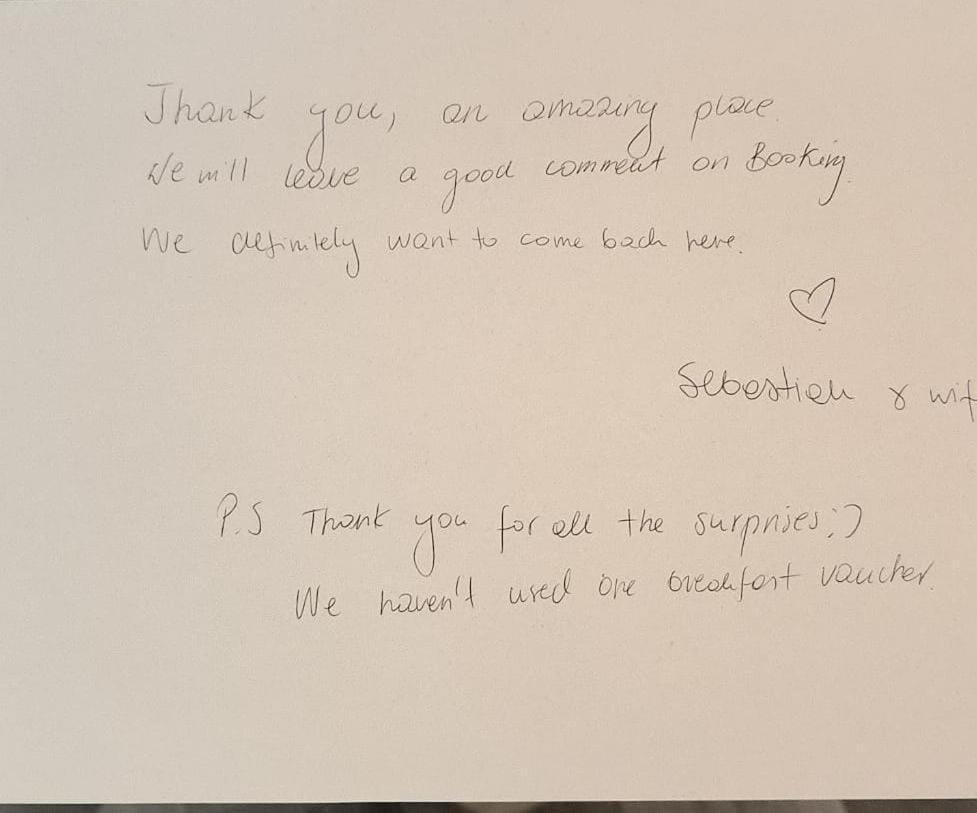 Thank you, an amazing place.
We will leave a good comment on Booking.
We definitely want to come back here.
♡
Sebastian & wif
P.S Thank you for all the surprises;)
We haven't used one breakfast voucher.